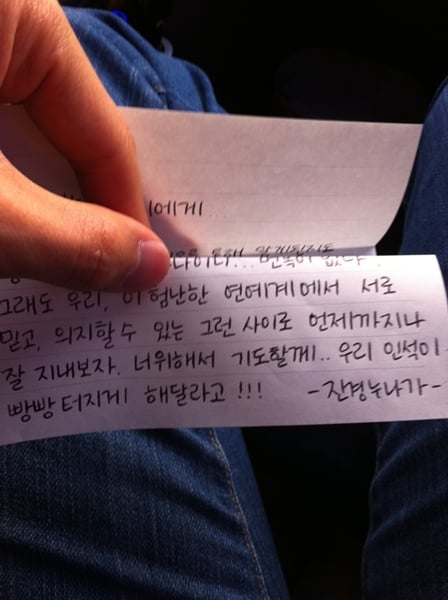 에게..
그래도 우리, 이 험난한 연예계에서 서로
믿고, 의지할 수 있는 그런 사이로 언제까지나
잘 지내보자. 너위해서 기도할께.. 우리 인석이
빵빵 터지게 해달라고!!! -진경누나가-